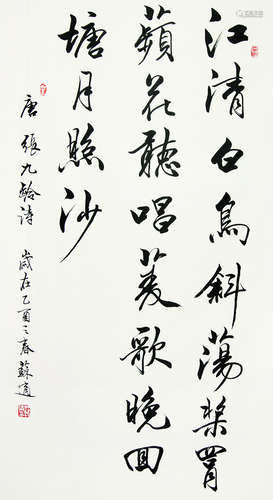 江清白鳥斜蕩槳罥
蘋花聽唱菱歌晚回
塘月照沙
唐張九齡诗 歲在乙酉之春蘇適